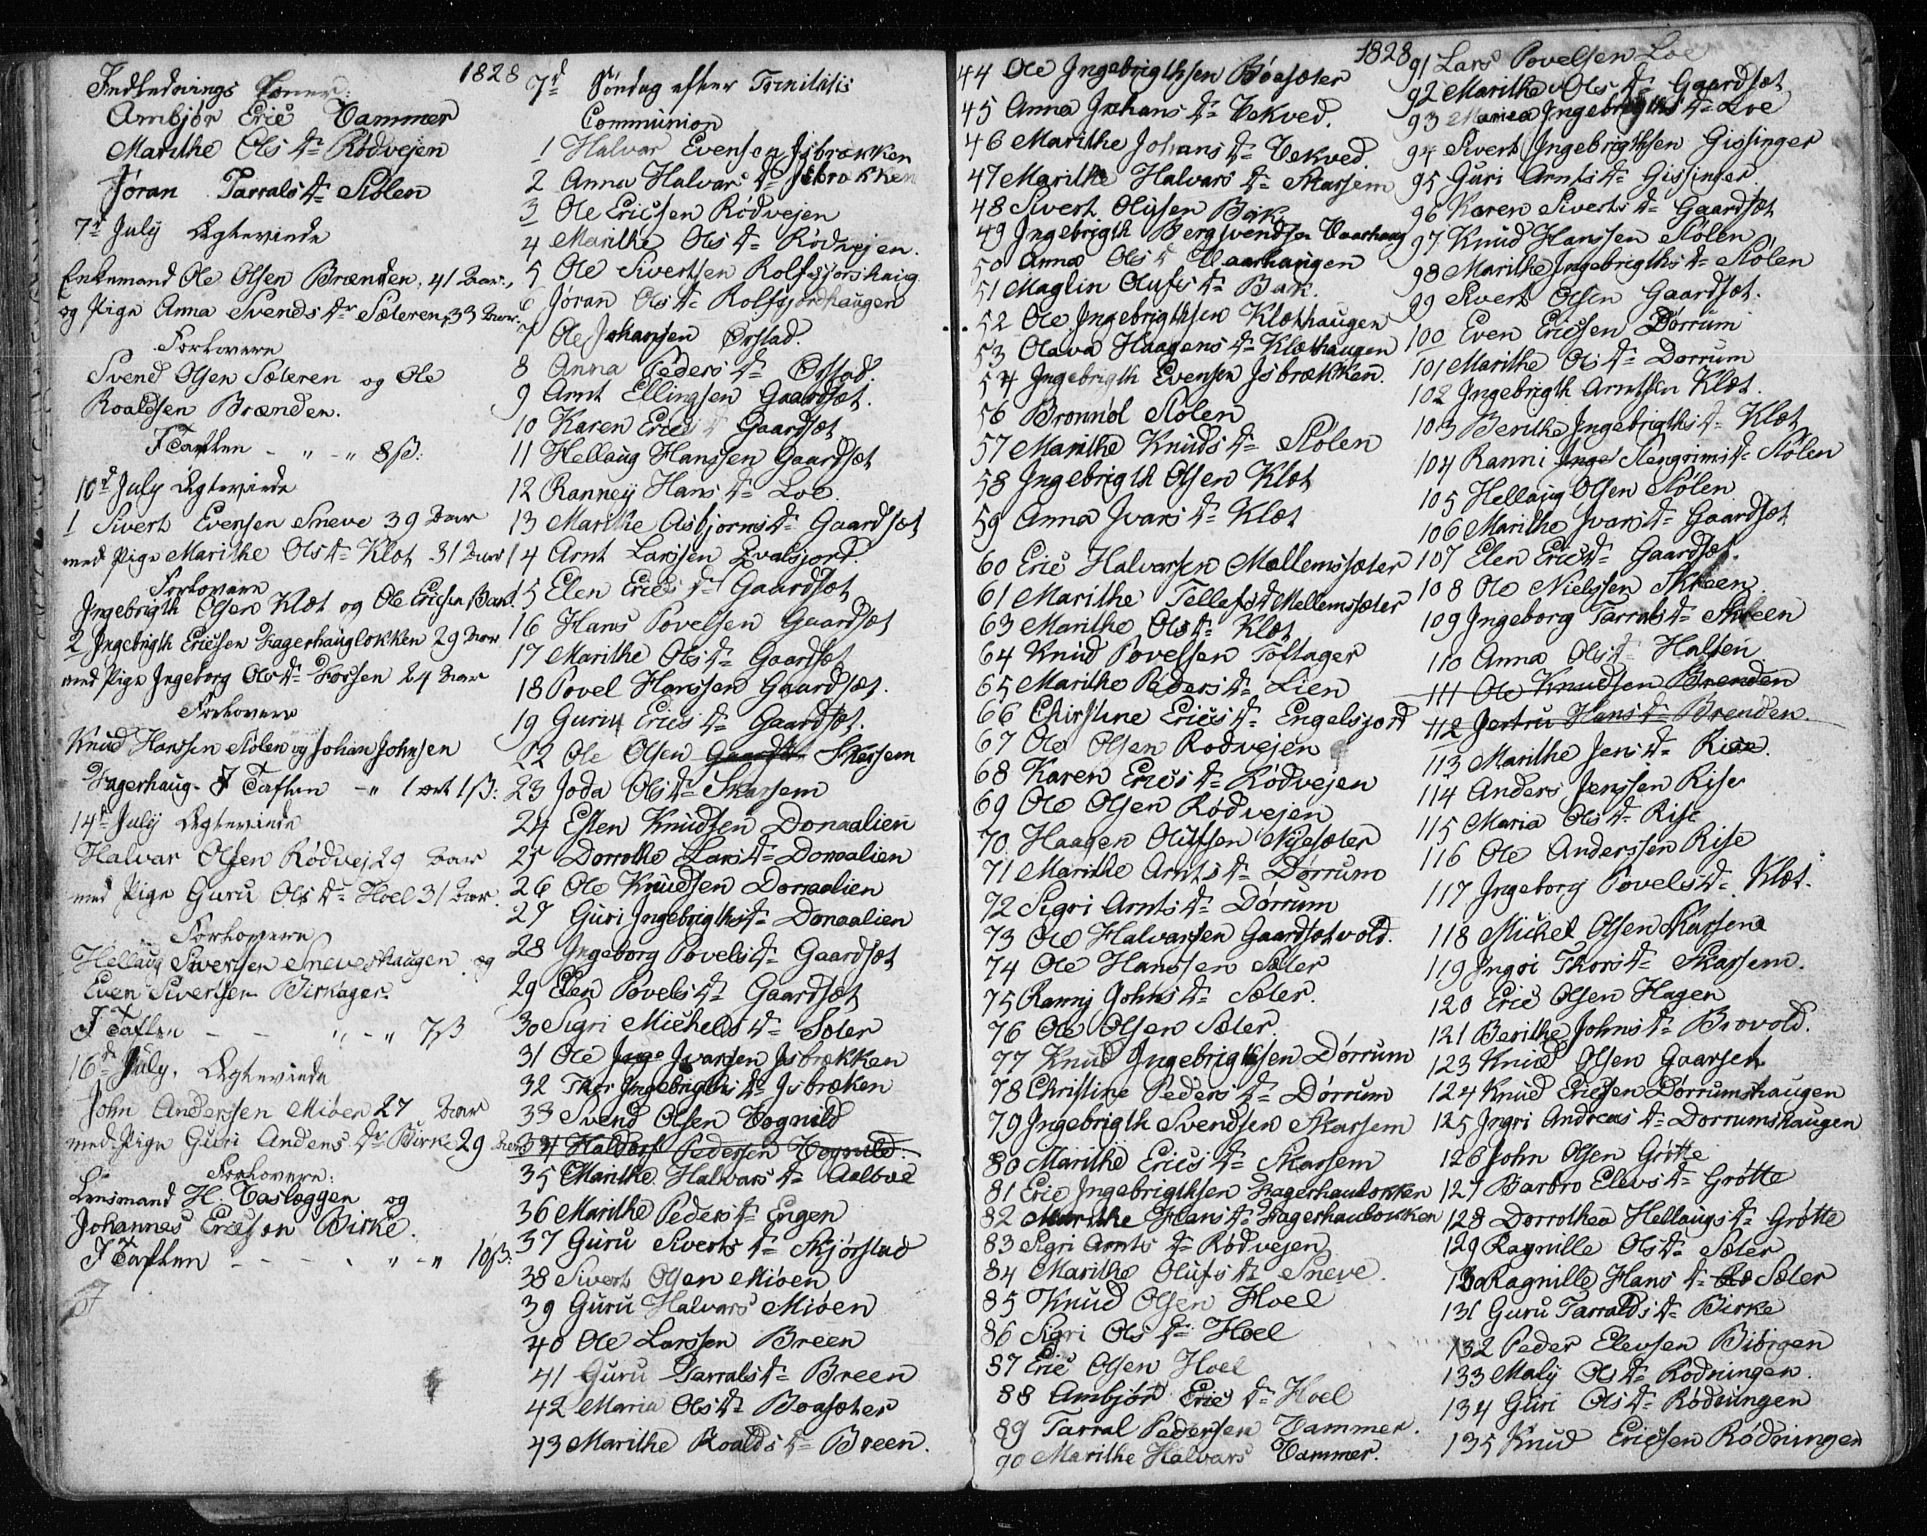 1828
Indlednings Koner:
Ambjør Erics Vammer
Marithe Ols Dr Rødvejen
Jøran Tarrals Dr Stølen
7d July Ægtevinde
Enkemand Ole Olsen Brænden, 41 Aar,
og Pige Anna Svends Dr Sæteren, 33 Aar
Forlovere
Svend Olsen Sæteren og Ole
Roaldsen Brænden.
I Taflen - " - " 8 ß:
10d July Ægtevinde
1 Sivert Evensen Sneve 39 Aar
med Pige Marithe Ols Dr Klæt 31 Aar
Forlovere
Ingebrigth Olsen Klæt og Ole Ericsen Bak
2 Ingebrigth Ericsen Fagerhauglokken 29 Aar
med Pige Ingeborg Ols Dr Fossen 24 Aar
Forlovere
Knud Hanssen Stølen og Johan Johnsen
Fagerhaug - I Taflen - " 1 ort 1 ß:
14d July Ægtevinde
Halvar Olsen Rødvej 29 Aar
med Pige Guru Ols Dr Hoel 31 Aar
Forlovere
Hellaug Sivertsen Sneveshaugen og
Even Sivertsen Birkager.
I Taflen - - " - " 7 ß
16de July. Ægtevinde
John Andersen Miøen 27 Aar
med Pige Guri Anders Dr Birke 29 Aar
Forlovere:
Lensmand H: Vaslæggen og
Johannes Ericson Birke.
I Taflen - - - - " - " 10 ß:
7d Søndag efter Trinitatis
Communion
1 Halvar Evensen Isbrækken
2 Anna Halvars Dr Isbrækken
3 Ole Ericsen Rødvejen
4 Marithe Ols Dr Rødvejen.
5 Ole Sivertsen Rolfsjorshaug
6 Jøran Ols Dr Rolfsjordhaugen
7 Ole Johansen Ørstad.
8 Anna Peders Dr Ørstad.
9 Arnt Ellingsen Gaardsæt.
10 Karen Erics Dr Gaardsæt
11 Hellaug Hanssen Gaardsæt
12 Ranney Hans Dr Loe.
13 Marithe Asbjørns Dr Gaardsæt
14 Arnt Larssen Hvalsjord.
15 Elen Erics Dr Gaardsæt
16 Hans Povelsen Gaardsæt
17 Marithe Ols Dr Gaardsæt
18 Povel Hanssen Gaardsæt.
19 Guru Erics Dr Gaardsæt.
22 Ole Olsen Gaardsæt Skarsem
23 Joda Ols Dr Skarsem
24 Esten Knudsen Donaalien
25 Dorrothe Lars Dr Donaalien
26 Ole Knudsen Donaalien
27 Guri Ingebrigths Dr Donaalien
28 Ingeborg Povels Dr Gaardsæt
29 Elen Povels Dr Gaardsæt
30 Sigri Michels Dr Sæter
31 Ole Inge Ivarsen Isbrækken
32 Thor Ingebrigths Dr Isbræken
33 Svend Olsen Vognild
34 Haldorf Pedersen Vognild.
35 Marithe Halvars Dr Aalbue
36 Marithe Peders Dr Engen
37 Guru Siverts Dr Skjørstad
38 Sivert Olsen Miøen
39 Guru Halvars Miøen
40 Ole Larssen Breen
41 Guru Tarrals Dr Breen
42 Maria Ols Dr Boasæter
43 Marithe Roalds Dr Breen.
1828
44 Ole Ingebrigthsen Boasæter
45 Anna Johans Dr Vekved.
46 Marithe Johans Dr Vekved.
47 Marithe Halvars Dr Skarsem
48 Sivert Olufsen Bak
49 Ingebrigth Bergsvendsen Vaarhaug
50 Anna Ols Dr Vaarhaugen
51 Maglin Olufs Dr Bak.
52 Ole Ingebrigthsen Klæthaugen
53 Olava Haagens Dr Klæthaugen
54 Ingebrigth Evensen Isbrækken.
56 Bronnøl Stølen
57 Marithe Knuds Dr Stølen
58 Ingebrigth Olsen Klæt
59 Anna Ivars Dr Klæt
60 Eric Halvarsen Mellemssæter
61 Marithe Tellefs Dr Mellemsæter
63 Marithe Ols Dr Klæt
64 Knud Povelsen Toftager
65 Marithe Peders Dr Lien
66 Christine Erics Dr Engelsjord
67 Ole Olsen Rødvejen
68 Karen Erics Dr Rødvejen
69 Ole Olsen Rødvejen
70. Haagen Olufsen Nysæter
71 Marithe Arnts Dr Dørrum
72 Sigri Arnts Dr Dørrum
73 Ole Halvarsen Gaardsætvold.
74 Ole Hanssen Sæter
75 Ranny Johns Dr Sæter.
76 Ole Olsen Sæter.
77 Knud Ingebrigthsen Dørrum
78 Christine Peders Dr Dørrum
79 Ingebrigth Svendsen Skarsem
80 Marithe Erics Dr Skarsem
81 Eric Ingebrigthsen Fagerhaulokken
82 Marithe Hans Dr Fagerhaulokken
83 Sigri Arnts Dr Rødvejen
84 Marithe Olufs Dr Sneve.
85 Knud Olsen Hoel
86 Sigri Ols Dr Hoel
87 Eric Olsen Hoel
88 Ambjør Erics Dr Hoel
89 Tarral Pedersen Vammer.
90 Marithe Halvars Vammer.
91 Lars Povelsen Loe
92 Marithe Ols Dr Gaardsæt
93 Marica Ingebrigths Dr Loe
94 Sivert Ingebrigthsen Gissinger
95 Guri Arnts Dr Gissinger
96 Karen Siverts Dr Gaardsæt
97 Knud Hanssen Stølen
98 Marithe Ingebrigths Dr Stølen
99 Sivert Olsen Gaardsæt.
100 Even Ericsen Dørrum
101 Marithe Ols Dr Dørrum
102 Ingebrigth Arntsen Klæt.
103 Berithe Ingebrigths Dr Klæt
104 Ranni Inge Stengrims Dr Stølen
105 Hellaug Olsen Stølen
106 Marithe Ivars Dr Gaardsæt
107 Elen Erics Dr Gaardsæt.
108 Ole Nielssen Skreen
109 Ingeborg Tarrals Dr Skreen
110 Anna Ols Dr Halsen
111 Ole Knudsen Brenden
112 Jertru Hans Dr Brenden.
113 Marithe Jens Dr Rise.
114 Anders Jenssen Rise
115 Maria Ols Dr Rise
116 Ole Anderssen Rise
117 Ingeborg Povels Dr Klæt.
118 Michel Olsen Skarsem
119 Ingri Thors Dr Skarsem.
120 Eric Olsen Hagen
121 Berithe Johns Dr Brovold.
123 Knud Olsen Gaarseth
124 Knud Ericsen Dørrumshaugen
125 Ingri Andreas Dr Dorrumshaugen
126 John Olsen Grøtte
127 Barbro Elevs Dr Grøtte
128 Dorrothea Hellaugs Dr Grøtte
129 Ragnille Ols Dr Sæter
130 Ragnille Hans Dr Sæter
131 Guru Tarralds Dr Birke
132 Peder Elevsen Biørgen
133 Maly Ols Dr Rødningen.
134 Guri Ols Dr Rødningen
135 Knud Ericsen Rødningen